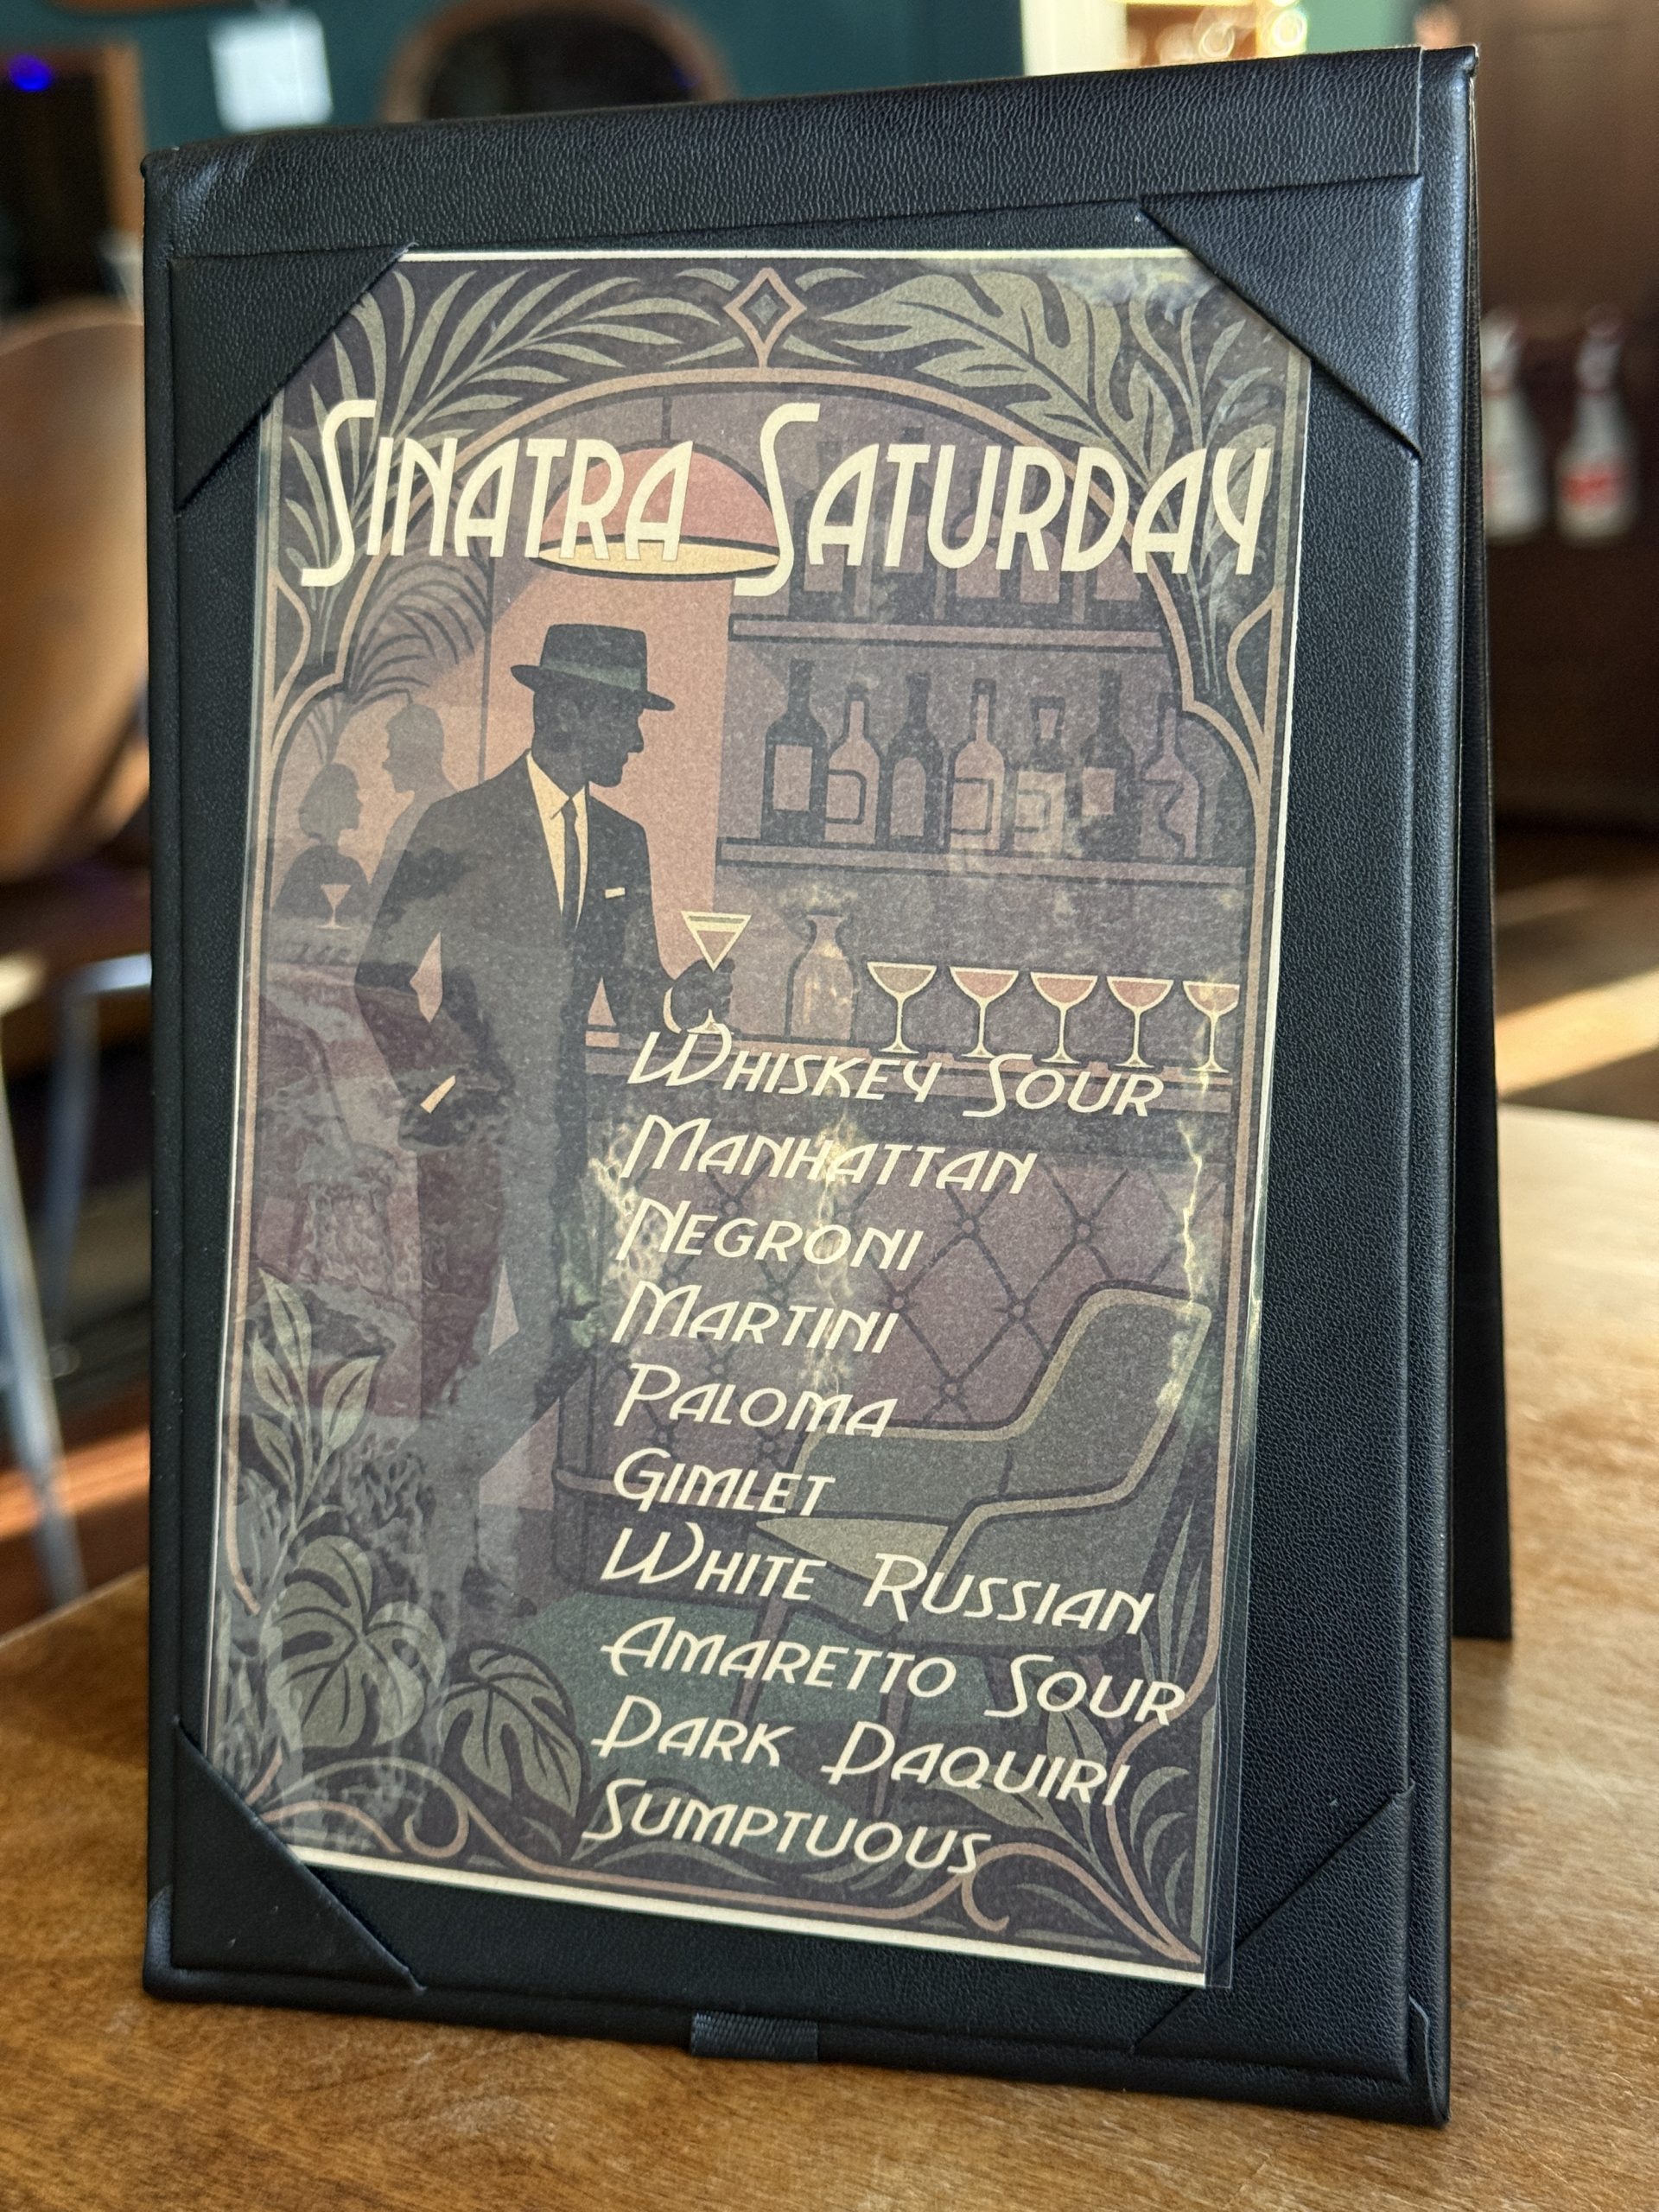 SINATRA SATURDAY
WHISKEY SOUR
MANHATTAN
NEGRONI
MARTINI
PALOMA
GIMLET
WHITE RUSSIAN
AMARETTO SOUR
DARK DAQUIRI
SUMPTUOUS